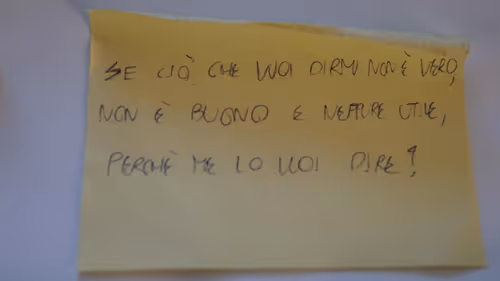 SE CIÒ CHE VUOI DIRMI NON È VERO,
NON È BUONO E NEPPURE UTILE,
PERCHÈ ME LO VUOI DIRE?